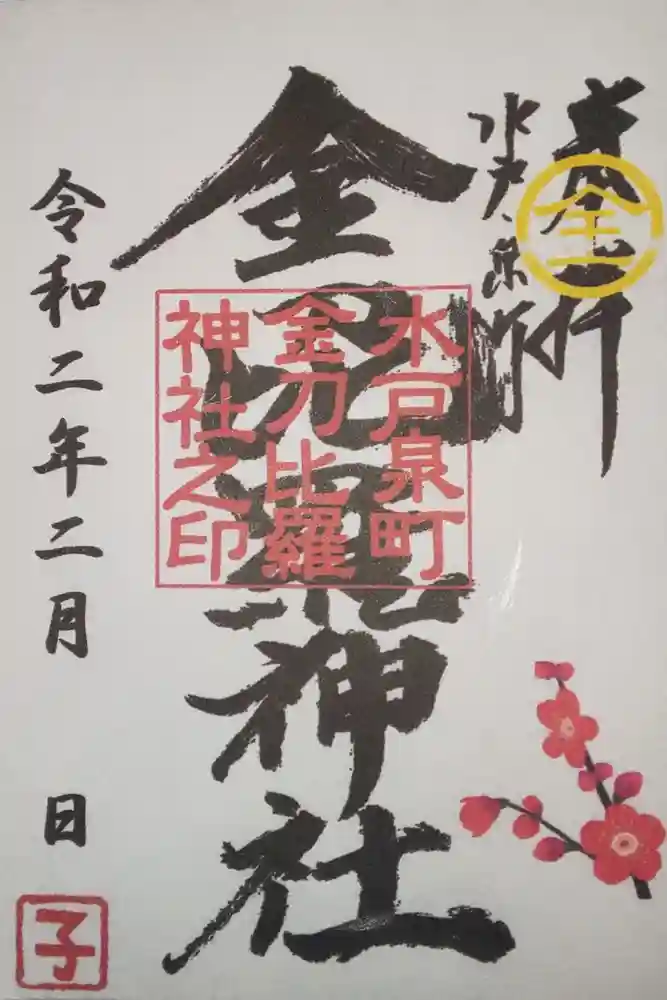 奉拝
水戸、泉町
金
金刀比羅神社
水戸泉町
金刀比羅
神社之印
令和二年二月 日
子